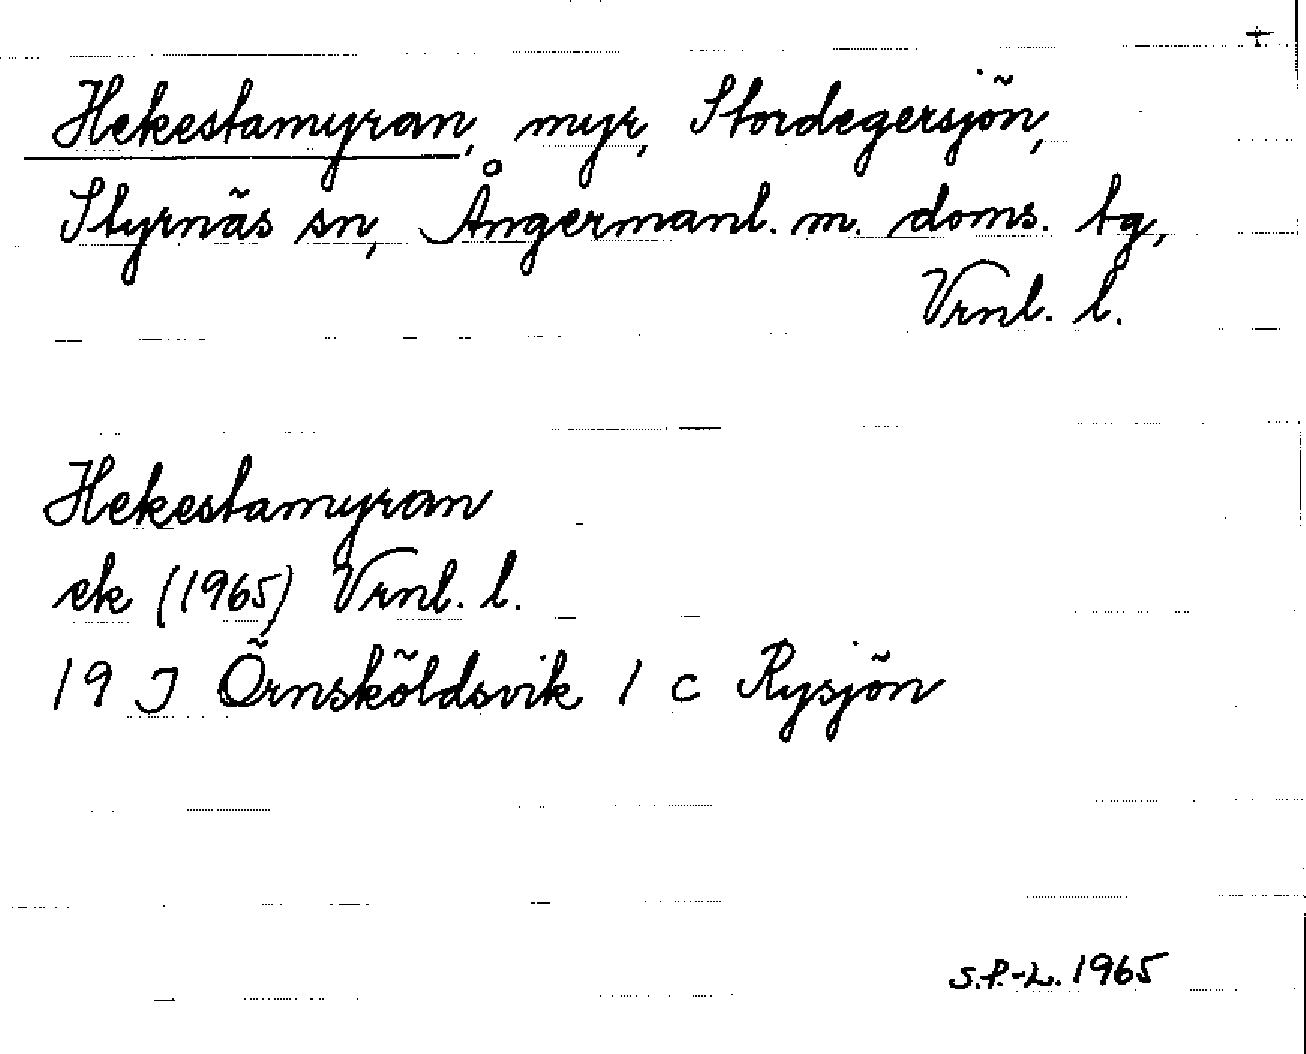 +
Hekestamyran, myr, Stordegersjön,
Styrnäs sn, Ångermanl. m. doms. tg,
Vrnl. l.
Hekestamyran
ek (1965) Vrnl. l.
19 J Örnsköldsvik 1 c Rysjön
S.P.-L. 1965